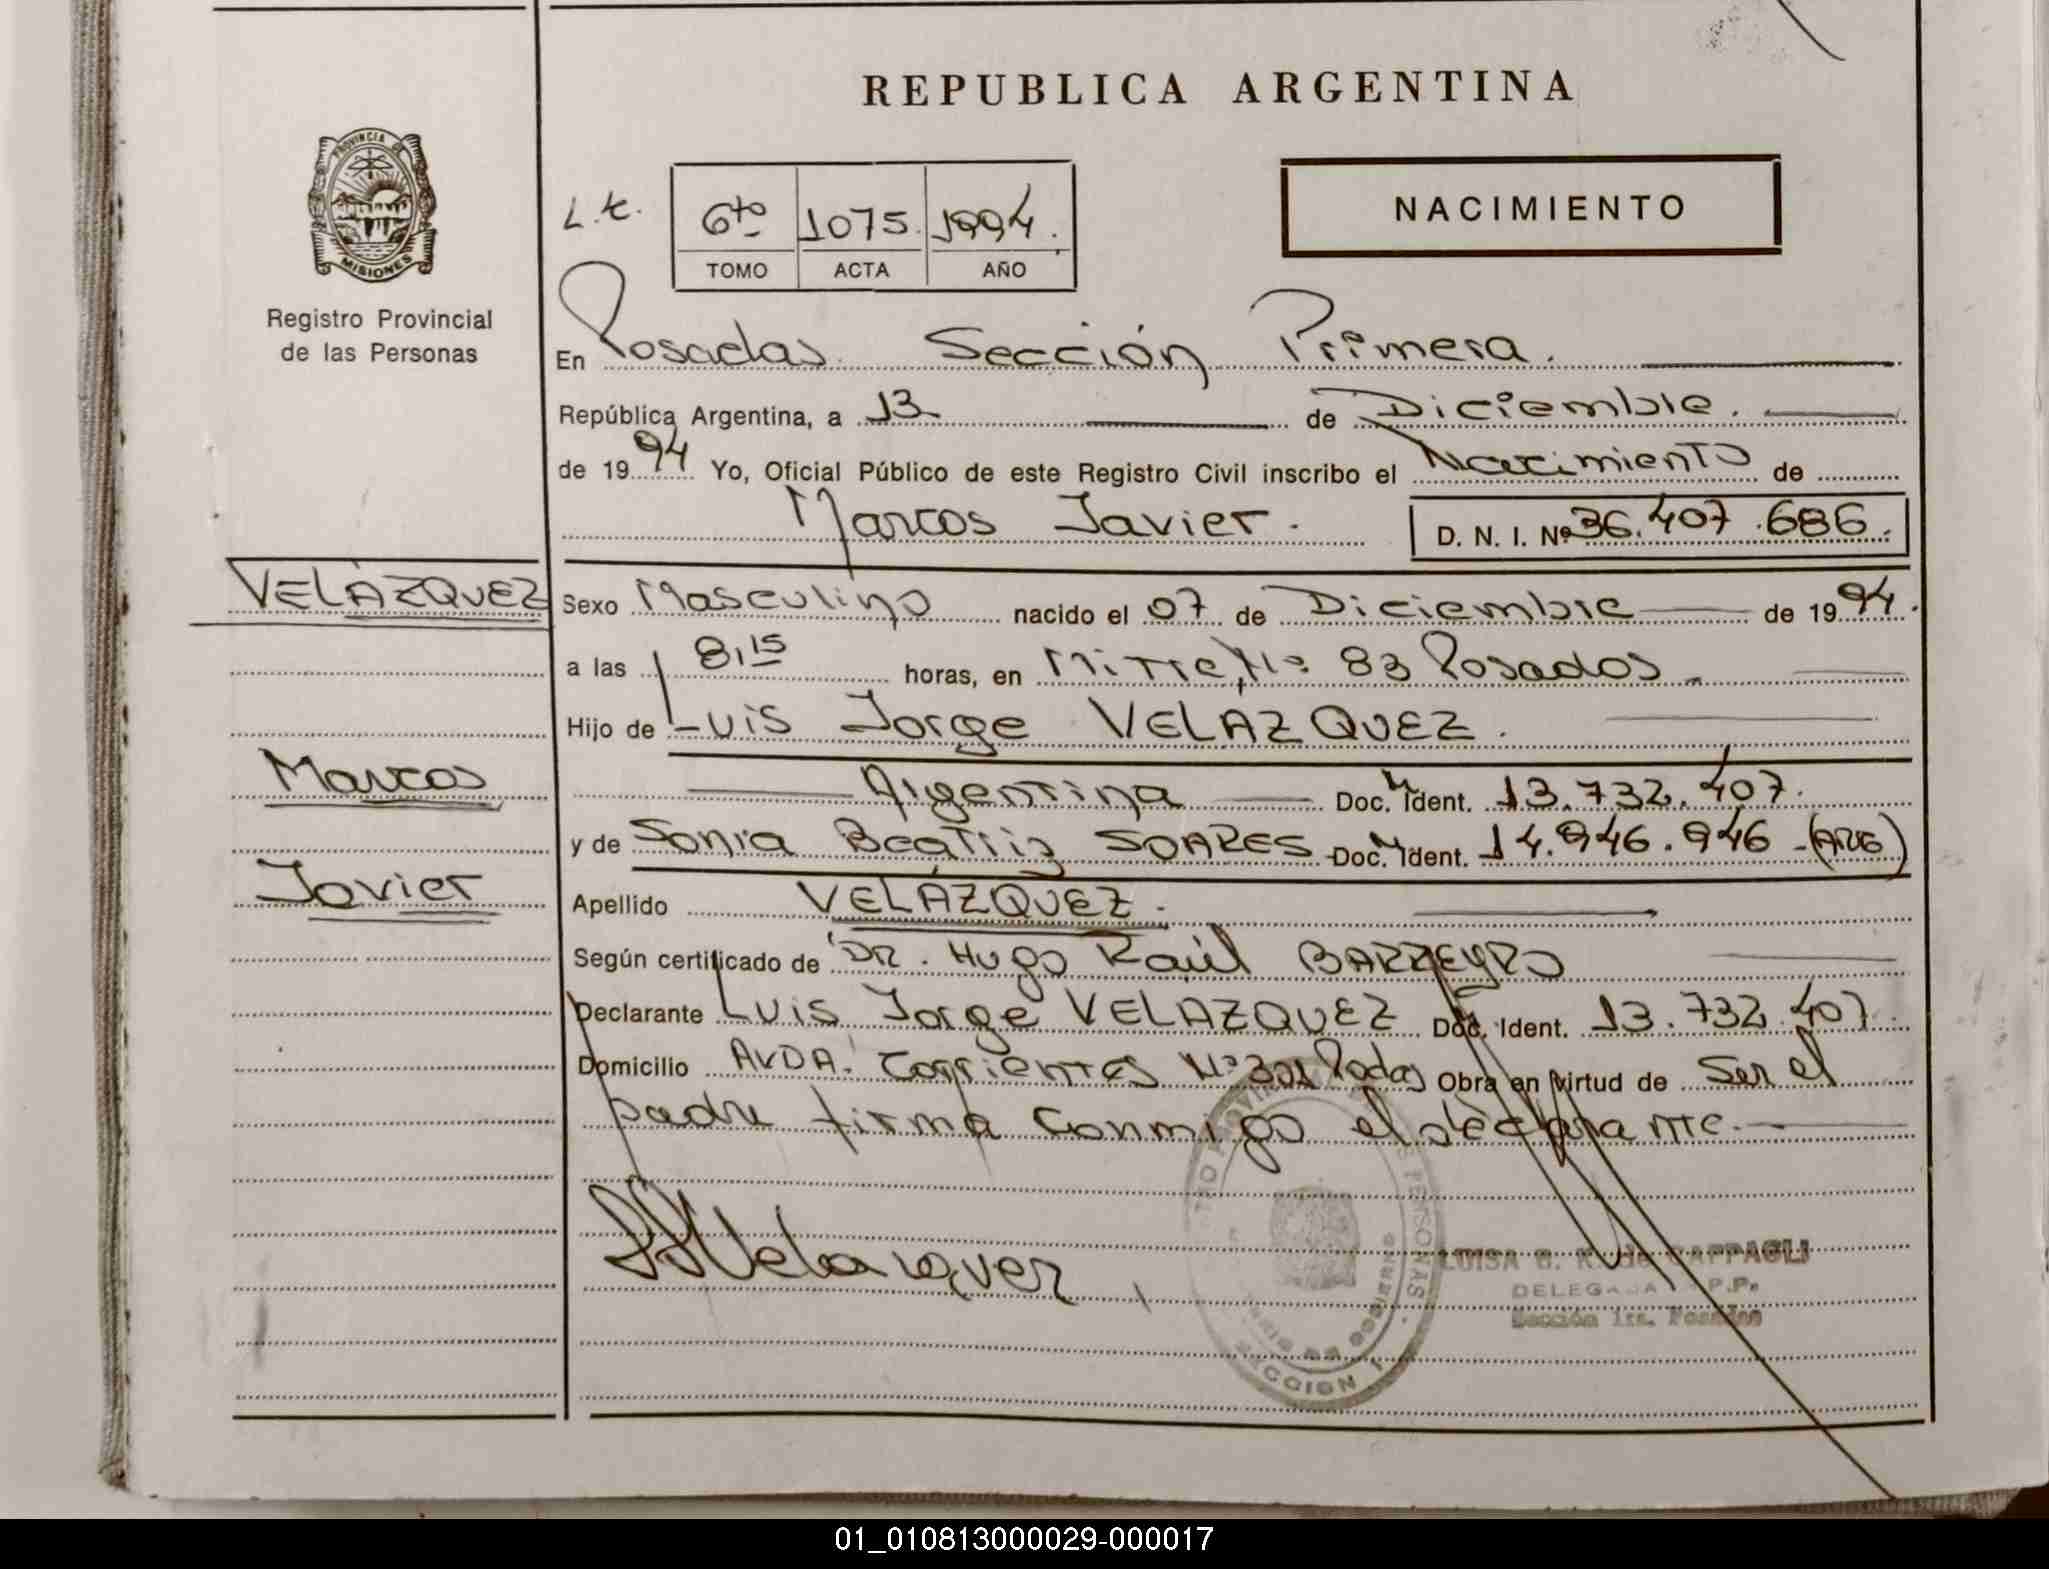 REPUBLICA ARGENTINA
PROVINCIA DE
MISIONES
Registro Provincial
de las Personas
L.t.
6to 1075. 1994.
TOMO ACTA AÑO
NACIMIENTO
En Posadas. Sección Primera.
República Argentina, a 13 de Diciembre.
de 1994 Yo, Oficial Público de este Registro Civil inscribo el Nacimiento de
Marcos Javier. D. N. I. Nº 36.407.686.
VELÁZQUEZ
Sexo Masculino nacido el 07 de Diciembre de 1994.
a las 8,15 horas, en Mitre Nº 83 Posadas.
Hijo de Luis Jorge VELAZQUEZ.
Marcos
Argentina Doc. Ident. 13.732.407.
y de Sonia Beatriz SOARES Doc. Ident. 14.946.946 - (ARG)
Javier
Apellido VELÁZQUEZ.
Según certificado de DR. Hugo Raúl BARREYRO
Declarante Luis Jorge VELAZQUEZ Doc. Ident. 13.732.407.
Domicilio AVDA. Corrientes Nº Pdas Obra en virtud de Ser el
padre firma conmigo el declarante.
Velazquez
LUISA G. K. de CAPPAGLI
DELEGADA R.P.P.
Sección 1ra. Posadas
PERSONAS
SECCION 1
01_010813000029-000017